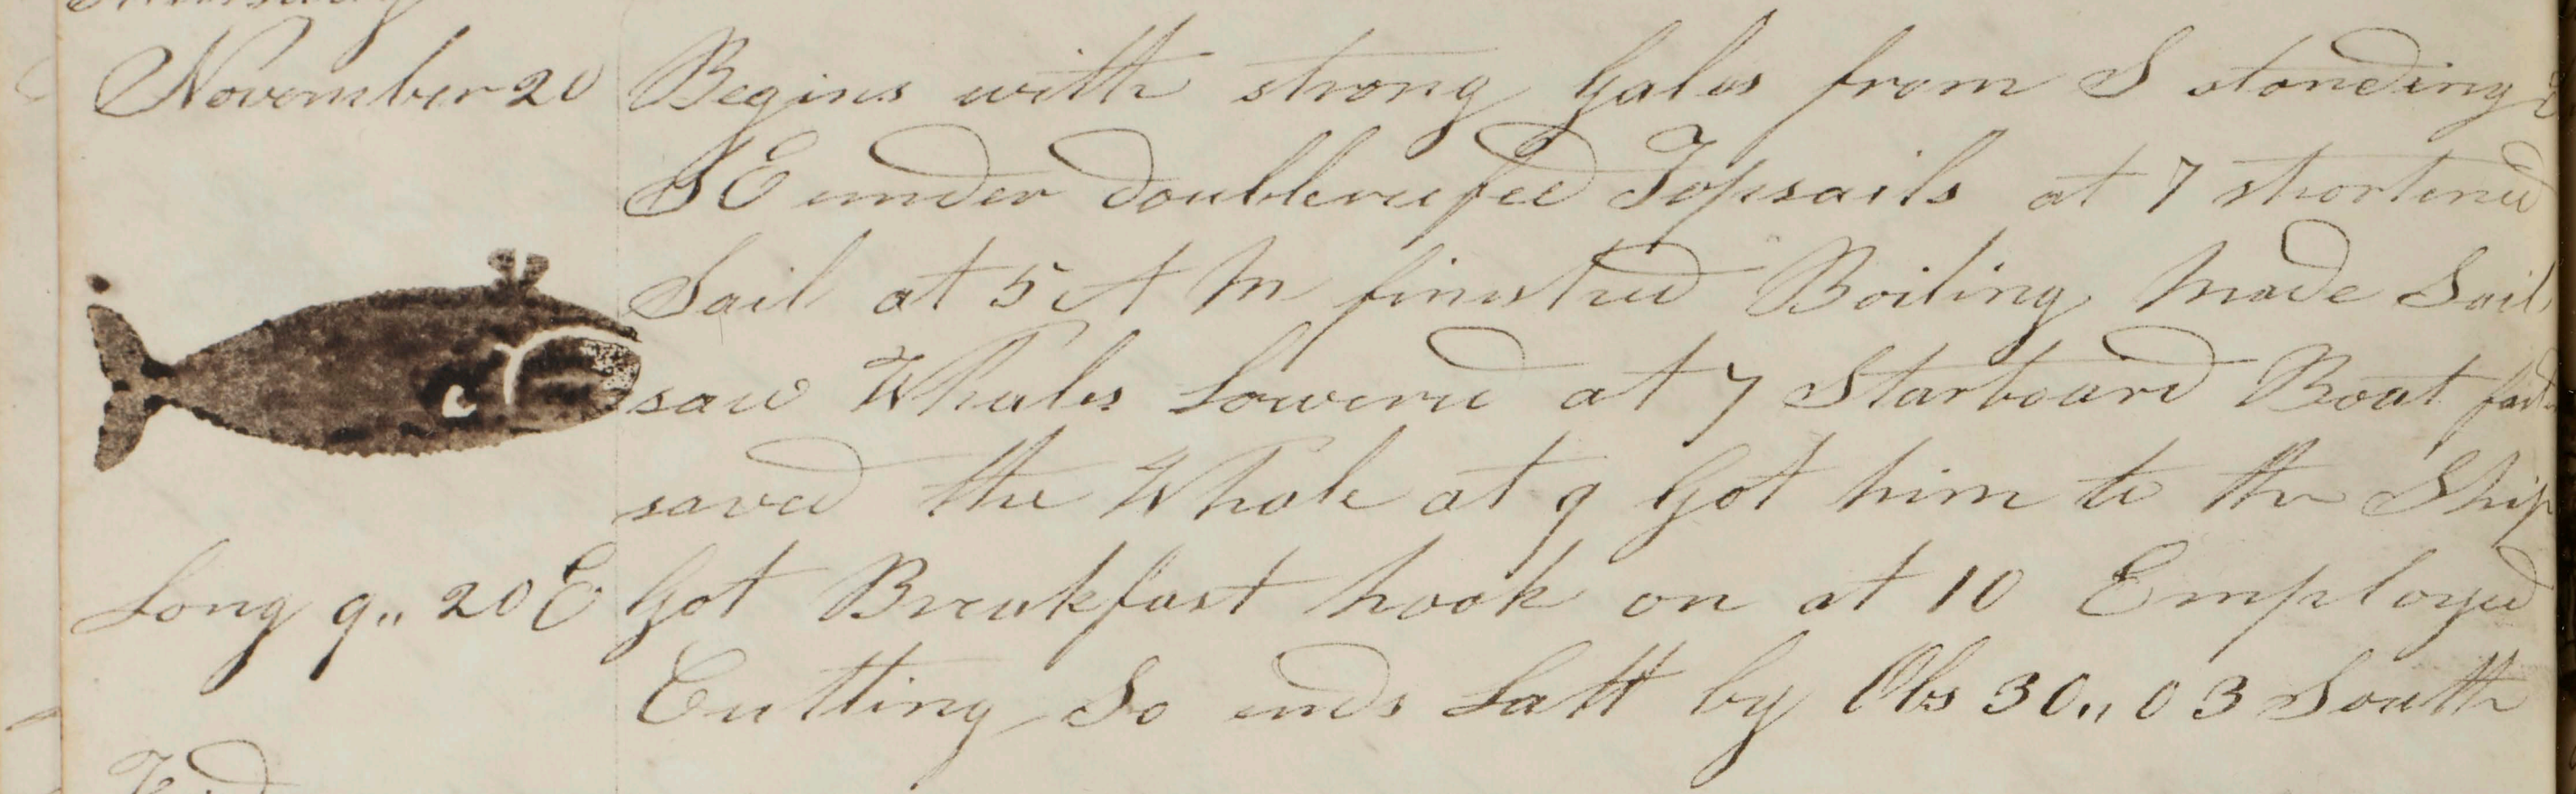 November 20 Begins with strong Gales from S standing
SE under doublereefed Topsails at 7 shortened
Sail at 5 A M finished Boiling Made Sail
saw Whales Lowered at 7 Starboard Boat fast
saved the Whale at 9 Got him to the Ship
Long 9,, 20 E Got Breakfast hook on at 10 Employed
Cutting So ends Latt by Obs 30,, 03 South